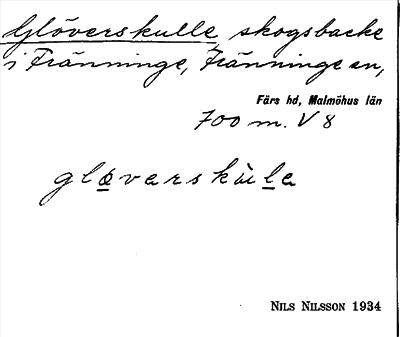 Glöverskulle, skogsbacke
i Fränninge, Fränninge sn,
Färs hd, Malmöhus län
700 m. V 8
glöverskùle
Nils Nilsson 1934